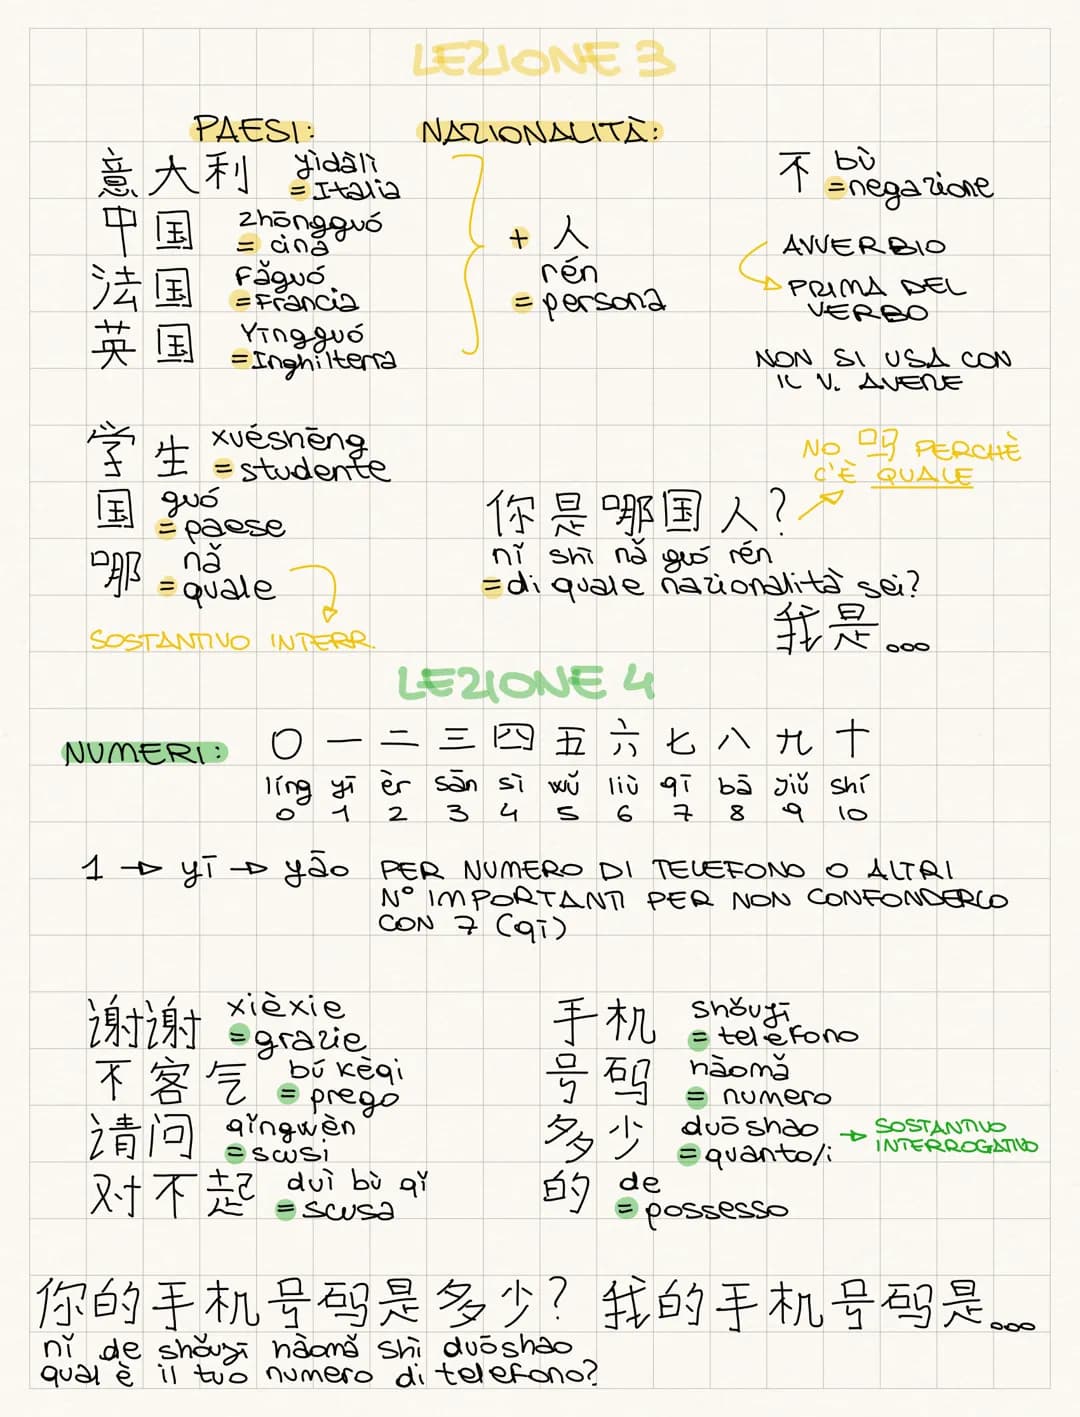 LEZIONE 3
PAESI:
意大利 yìdàlì
=Italia
中国 zhōngguó
= cina
法国 Fǎguó
=Francia
英国 Yīngguó
=Inghilterra
NAZIONALITÀ:
+ 人
rén
= persona
不 bù
=negazione
AVVERBIO
PRIMA DEL
VERBO
NON SI USA CON
IL V. AVERE
学生 xuéshēng
=studente
国 guó
=paese
哪 nǎ
=quale
SOSTANTIVO INTERR.
NO 吗 PERCHÈ
C'È QUALE
你是哪国人?
nǐ shì nǎ guó rén
=di quale nazionalità sei?
我是...
LEZIONE 4
NUMERI:
〇 一 二 三 四 五 六 七 八 九 十
líng yī èr sān sì wǔ liù qī bā jiǔ shí
0 1 2 3 4 5 6 7 8 9 10
1 → yī → yāo PER NUMERO DI TELEFONO O ALTRI
N° IMPORTANTI PER NON CONFONDERLO
CON 7 (qī)
谢谢 xièxie
=grazie
不客气 bú kèqi
= prego
请问 qǐngwèn
=scusi
对不起 duì bù qǐ
=scusa
手机 shǒujī
= telefono
号码 hàomǎ
= numero
多少 duōshao
=quanto/i
→ SOSTANTIVO
INTERROGATIVO
的 de
=possesso
你的手机号码是多少? 我的手机号码是...
nǐ de shǒujī hàomǎ shì duōshao
qual è il tuo numero di telefono?